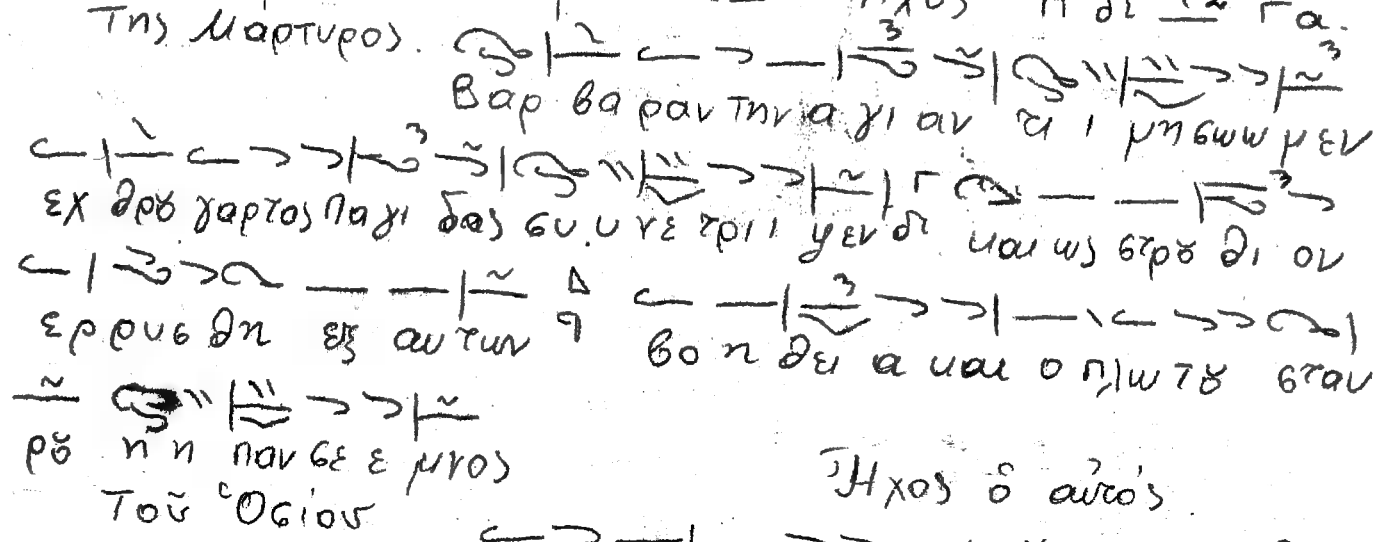 Της Μάρτυρος.
Βαρ βα ραν την α γι αν τι ι μη σωω μεν
εχ θρȣ γαρ τος πα γι δας συ υ νε τρι ι ψεν δι και ως στρȣ θι ον
ερ ρυσ θη εξ αυ των βο η θει α και ο πλω τȣ σταν
ρȣ η η παν σε ε μνος
Ἦχος ὁ αὐτός
Τοῦ Ὁσίου